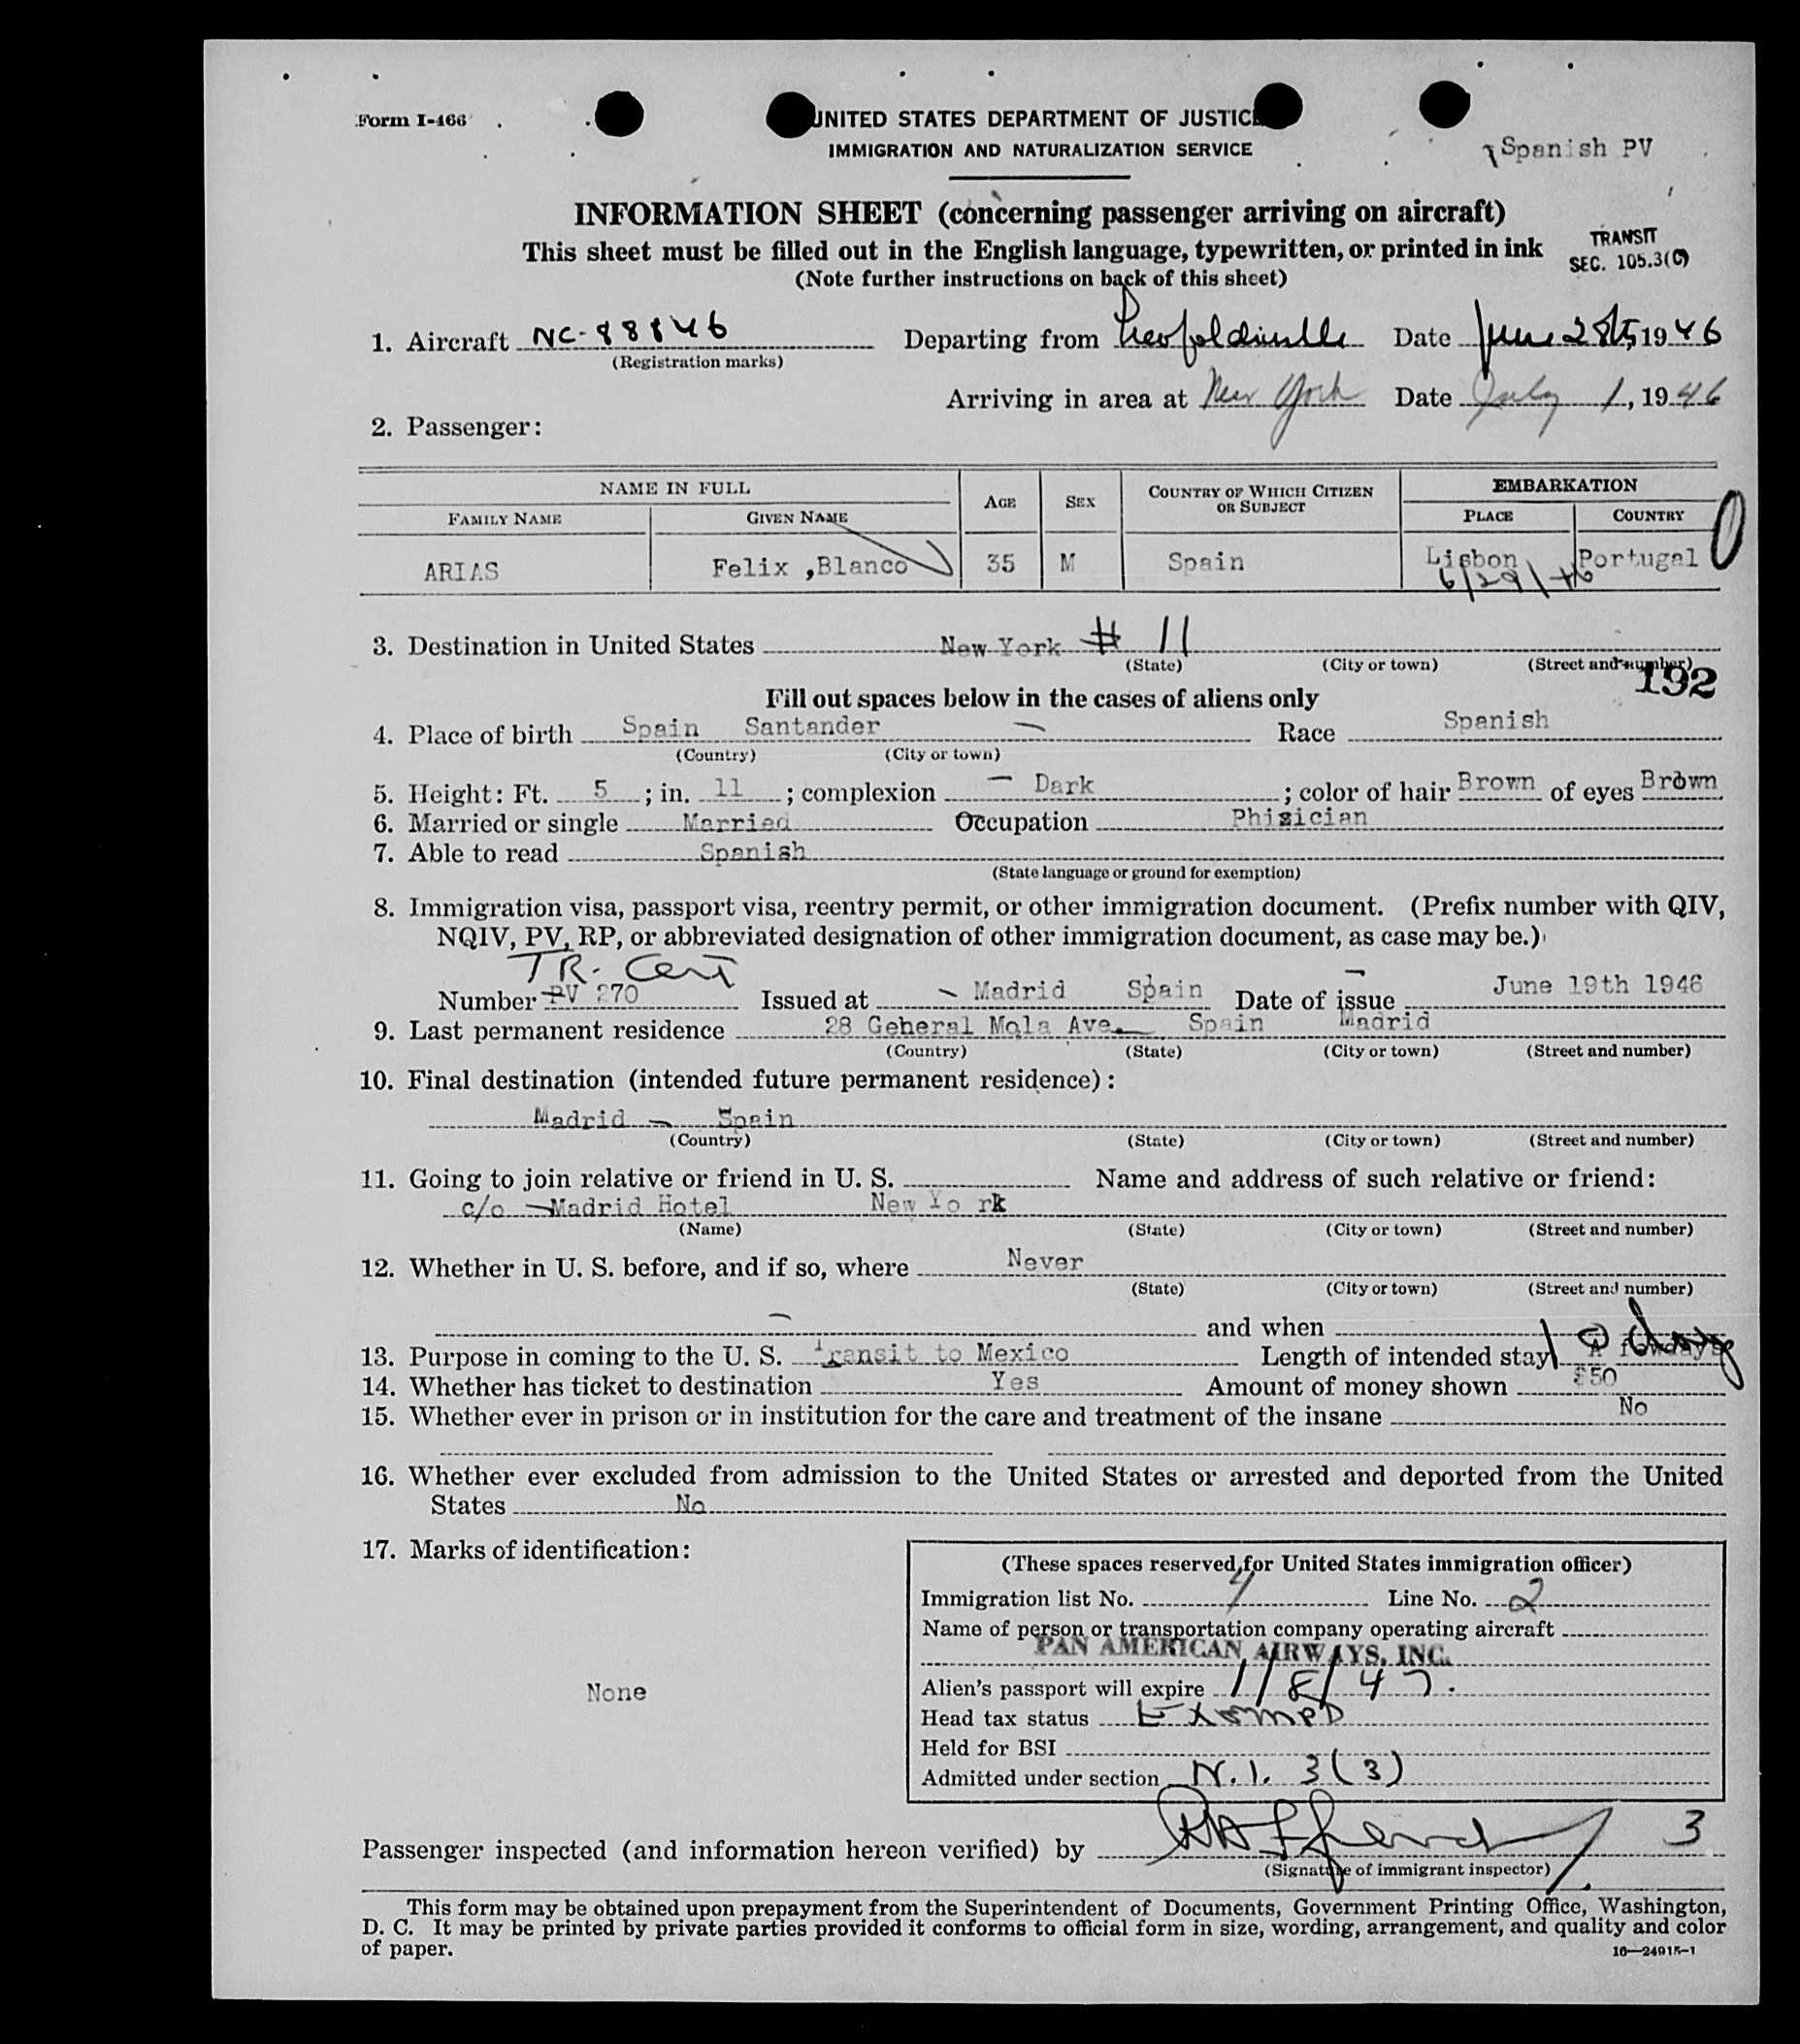 Form I-466
UNITED STATES DEPARTMENT OF JUSTICE
IMMIGRATION AND NATURALIZATION SERVICE
Spanish PV
INFORMATION SHEET (concerning passenger arriving on aircraft)
This sheet must be filled out in the English language, typewritten, or printed in ink
(Note further instructions on back of this sheet)
TRANSIT
SEC. 105.3(C)
1. Aircraft NC-88846 Departing from Leopoldville Date June 28th, 1946
(Registration marks)
Arriving in area at New York Date July 1, 1946
2. Passenger:
NAME IN FULL AGE SEX COUNTRY OF WHICH CITIZEN OR SUBJECT EMBARKATION
FAMILY NAME GIVEN NAME PLACE COUNTRY
ARIAS Felix ,Blanco 35 M Spain Lisbon Portugal
6/29/46
3. Destination in United States New York # 11
(State) (City or town) (Street and number)
192
Fill out spaces below in the cases of aliens only
4. Place of birth Spain Santander Race Spanish
(Country) (City or town)
5. Height: Ft. 5 ; in. 11 ; complexion Dark ; color of hair Brown of eyes Brown
6. Married or single Married Occupation Phizician
7. Able to read Spanish
(State language or ground for exemption)
8. Immigration visa, passport visa, reentry permit, or other immigration document. (Prefix number with QIV,
NQIV, PV, RP, or abbreviated designation of other immigration document, as case may be.)
TR. Cert
Number PV 270 Issued at Madrid Spain Date of issue June 19th 1946
9. Last permanent residence 28 Geheral Mola Ave. Spain Madrid
(Country) (State) (City or town) (Street and number)
10. Final destination (intended future permanent residence):
Madrid Spain
(Country) (State) (City or town) (Street and number)
11. Going to join relative or friend in U. S. Name and address of such relative or friend:
c/o Madrid Hotel New Yo rk
(Name) (State) (City or town) (Street and number)
12. Whether in U. S. before, and if so, where Never
(State) (City or town) (Street and number)
and when
13. Purpose in coming to the U. S. Transit to Mexico Length of intended stay 10 days A few days
14. Whether has ticket to destination Yes Amount of money shown $50
15. Whether ever in prison or in institution for the care and treatment of the insane No
16. Whether ever excluded from admission to the United States or arrested and deported from the United
States No
17. Marks of identification:
None
(These spaces reserved for United States immigration officer)
Immigration list No. 4 Line No. 2
Name of person or transportation company operating aircraft
PAN AMERICAN AIRWAYS, INC.
Alien's passport will expire 1/8/47.
Head tax status Exemp
Held for BSI
Admitted under section N.I. 3(3)
Passenger inspected (and information hereon verified) by 3
(Signature of immigrant inspector)
This form may be obtained upon prepayment from the Superintendent of Documents, Government Printing Office, Washington,
D. C. It may be printed by private parties provided it conforms to official form in size, wording, arrangement, and quality and color
of paper.
16—24915-1